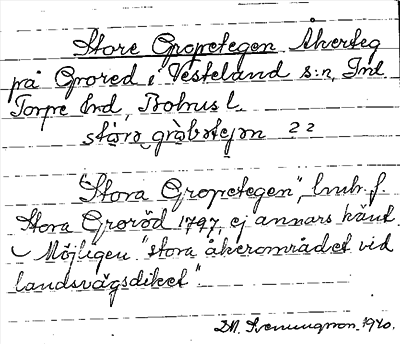 Store Gropetegen Åkerteg
på Grored i Vesteland s:n, Inl
Torpe hd, Bohus l.
stora grobstejen 22
"Stora Gropetegen", hmb. f.
Stora Groröd 1797, ej annars känt.
Möjligen "stora åkerområdet vid
landsvägsdiket".
1940.